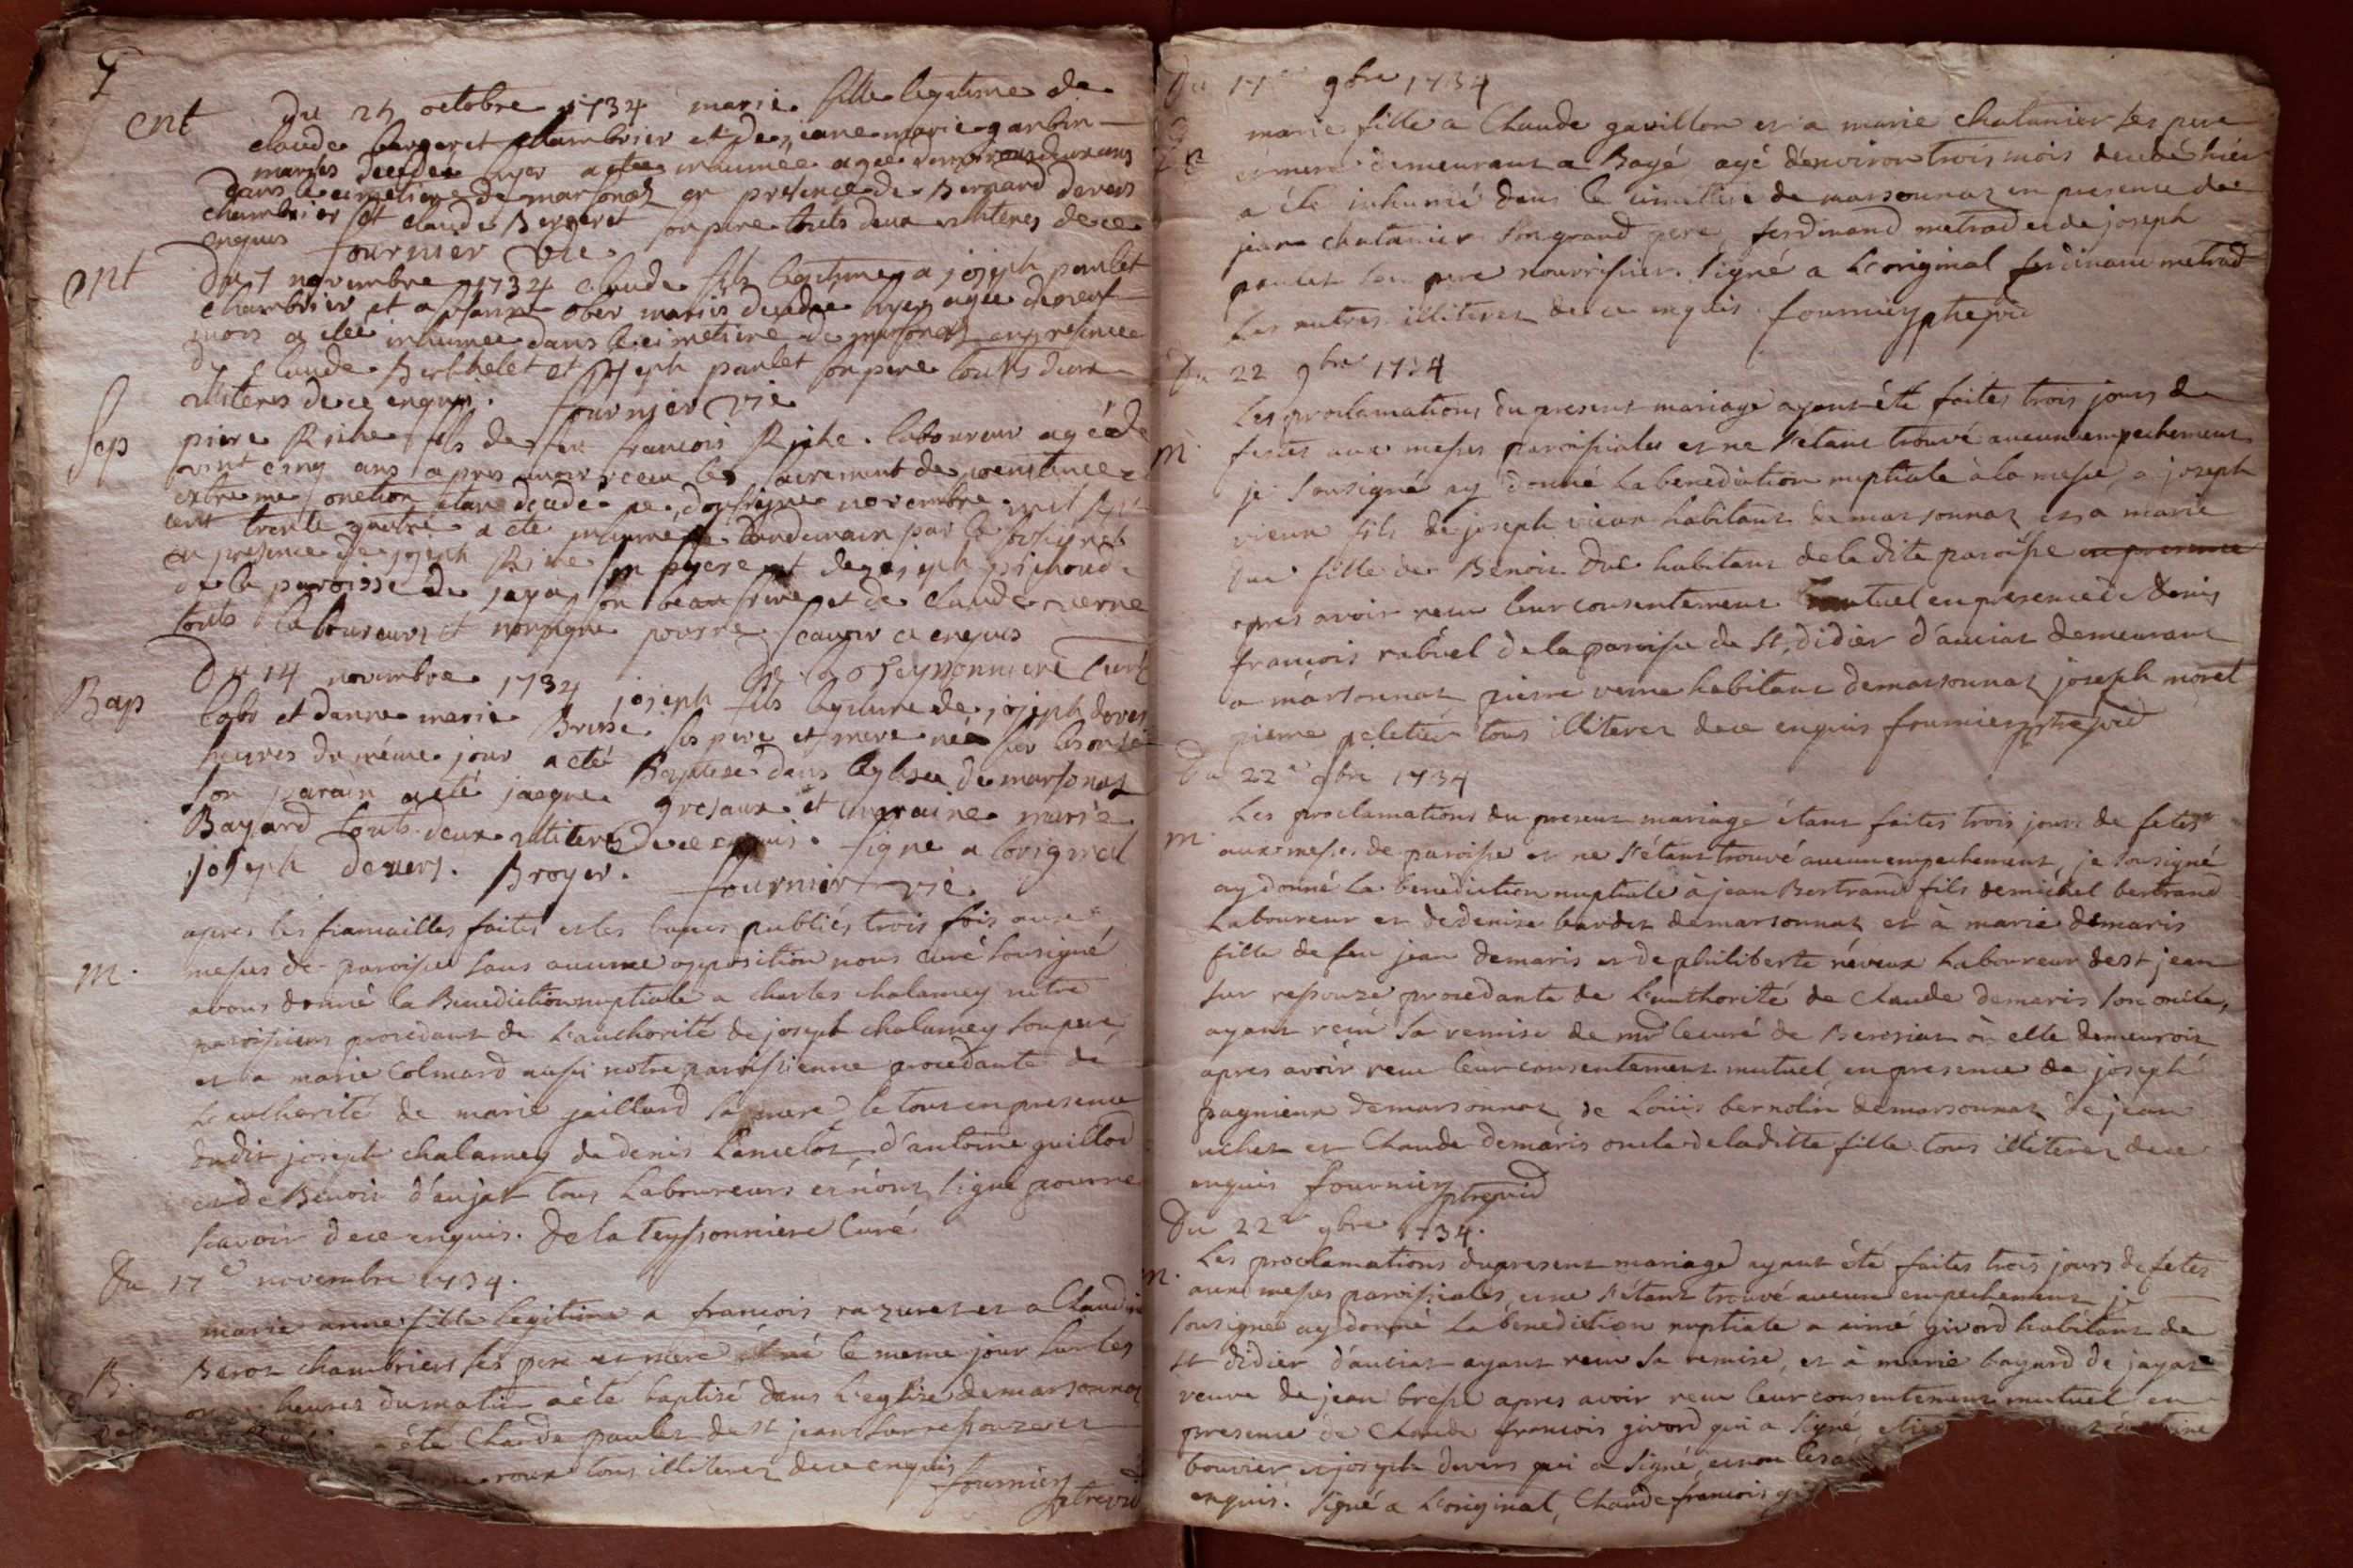 ent Du 25 octobre 1734 marie fille legitime de
claude bergeret chambrier et de jeane marie garbin
mariés decedée hyer a été inhumée agée d'environ deux ans
dans le cimetiere de marsonas en presence de Bernard devers
chambrier et claude Bergeret son pere touts deux illiteres de ce
enquis fournier vie
ent Du 7 novembre 1734 claude fils legitime a joseph paulet
chambrier et a ober mariés decedé hyer agée de neuf
mois a été inhumée dans le cimetiere de marsonas en presence
de Claude Berthelet et joseph paulet son pere touts deux
illiteres de ce enquis. fournier vie
Sep piere Riche fils de feu francois Riche laboureur agé de
vint cinq ans apres avoir receu les sacrement de penitence
extreme onction etant decedé le novembre mil sept
cent trente quatre a été inhumé le landemain par le soussigné
en presence de joseph Riche son frere et de joseph pichoud
de la paroisse de jaya son beau frere et de claude verne
touts laboureurs et non signe pour ne scavoir ce enquis
De la Teyssonniere Curé
Bap Du 14 novembre 1734 joseph fils legitime de joseph devers
labr et danne marie Bresse ses pere et mere né sur les onze
heures du méme jour a eté Baptisé dans leglise de marsonas
son parain a eté jacque gresaux et maraine marie
Bayard touts deux illiteres de ce enquis. signe a loriginal
joseph devers. Broyer. fournier vie.
apres les fiancailles faites et les bancs publiés trois fois aux
m. messes de paroisse sans aucune opposition nous curé sousigné
avons donné la Benediction nuptiale a charles chalamey notre
paroissiens procedant de l'authorité de joseph chalamey son pere,
et a marie Colmard aussi notre paroissienne procedante de
l'authorité de marie gaillard sa mere, le tout en presence
dudit joseph chalamey de denis Lancelot, d'antoine guillod
et de Benoit d'aujat tous Laboureurs et n'ont signé pour ne
scavoir de ce enquis. De la teyssonniere Curé.
Du 17e novembre 1734.
marie anne fille legitime a francois razuret et a Claudine
B. Berot chambriers ses pere et mere né le meme jour sur les
heures du matin a été baptisé dans l'eglise de marsonnas
a été Claude paulet de st jean sur ressouze et
roux tous illiteres de ce enquis fournier
ptrevie
Du 17e 9bre 1734
marie fille a Claude gavillon et a marie chatanier ses pere
et mere demeurant a Bagé agé d'environ trois mois decedé hier
a été inhumé dans le cimetiere de marsonnas en presence de
jean chatanier son grand pere, ferdinand metrad et de joseph
paulet son pere nourrissier. Signé a l'original ferdinand metrad
Les autres illiteres de ce enquis. fournier ptrevie
Du 22 9bre 1734
Les proclamations du present mariage ayant été faites trois jours de
m. festes aux messes paroissiales et ne s'etant trouvé aucun empechement
je sousigné ay donné la benediction nuptiale à la messe, a joseph
vieux fils de joseph vieux habitant de marsonnas et a marie
duc fille de Benoit duc habitant de la dite paroisse en presence
apres avoir receu leur consentement mutuel en presence de denis
francois rabuel de la paroisse de St. didier d'auciat demeurant
a marsonnas, pierre verne habitant de marsonnas joseph morel
pierre peletier tous illiteres de ce enquis fournier ptrevie
Du 22e 9bre 1734
Les proclamations du present mariage étant faites trois jours de fetes
m. aux messes de paroisse et ne s'étant trouvé aucun empechement, je sousigné
ay donné la benediction nuptiale à jean Bertrand fils de michel bertrand
Laboureur et de denise bardet de marsonnas et à marie demaris
fille de feu jean demaris et de philiberte néveux Laboureur de st jean
sur ressouze procedante de L'authorité de Claude demaris son oncle,
ayant receu sa remise de mr le curé de Beresiat où elle demeuroit
apres avoir receu leur consentement mutuel, en presence de joseph
pagnieux de marsonnas, de Loüis bernolin de marsonnas, de jean
uchet et Claude demaris oncle de la ditte fille tous illiteres de ce
enquis fournier ptrevie
Du 22e 9bre 1734.
Les proclamations du present mariage ayant été faites trois jours de fetes
m. aux messes paroissiales, et ne s'étant trouvé aucun empechement, je
sousigné ay donné la benediction nuptiale a aimé givord habitant de
st didier d'auciat ayant receu sa remise, et à marie bayard de jayat
veuve de jean bresse apres avoir receu leur consentement mutuel, en
presence de Claude francois givord qui a signé,
bouvier et joseph devers qui a signé, et non les
enquis. Signé a L'original, Claude francois